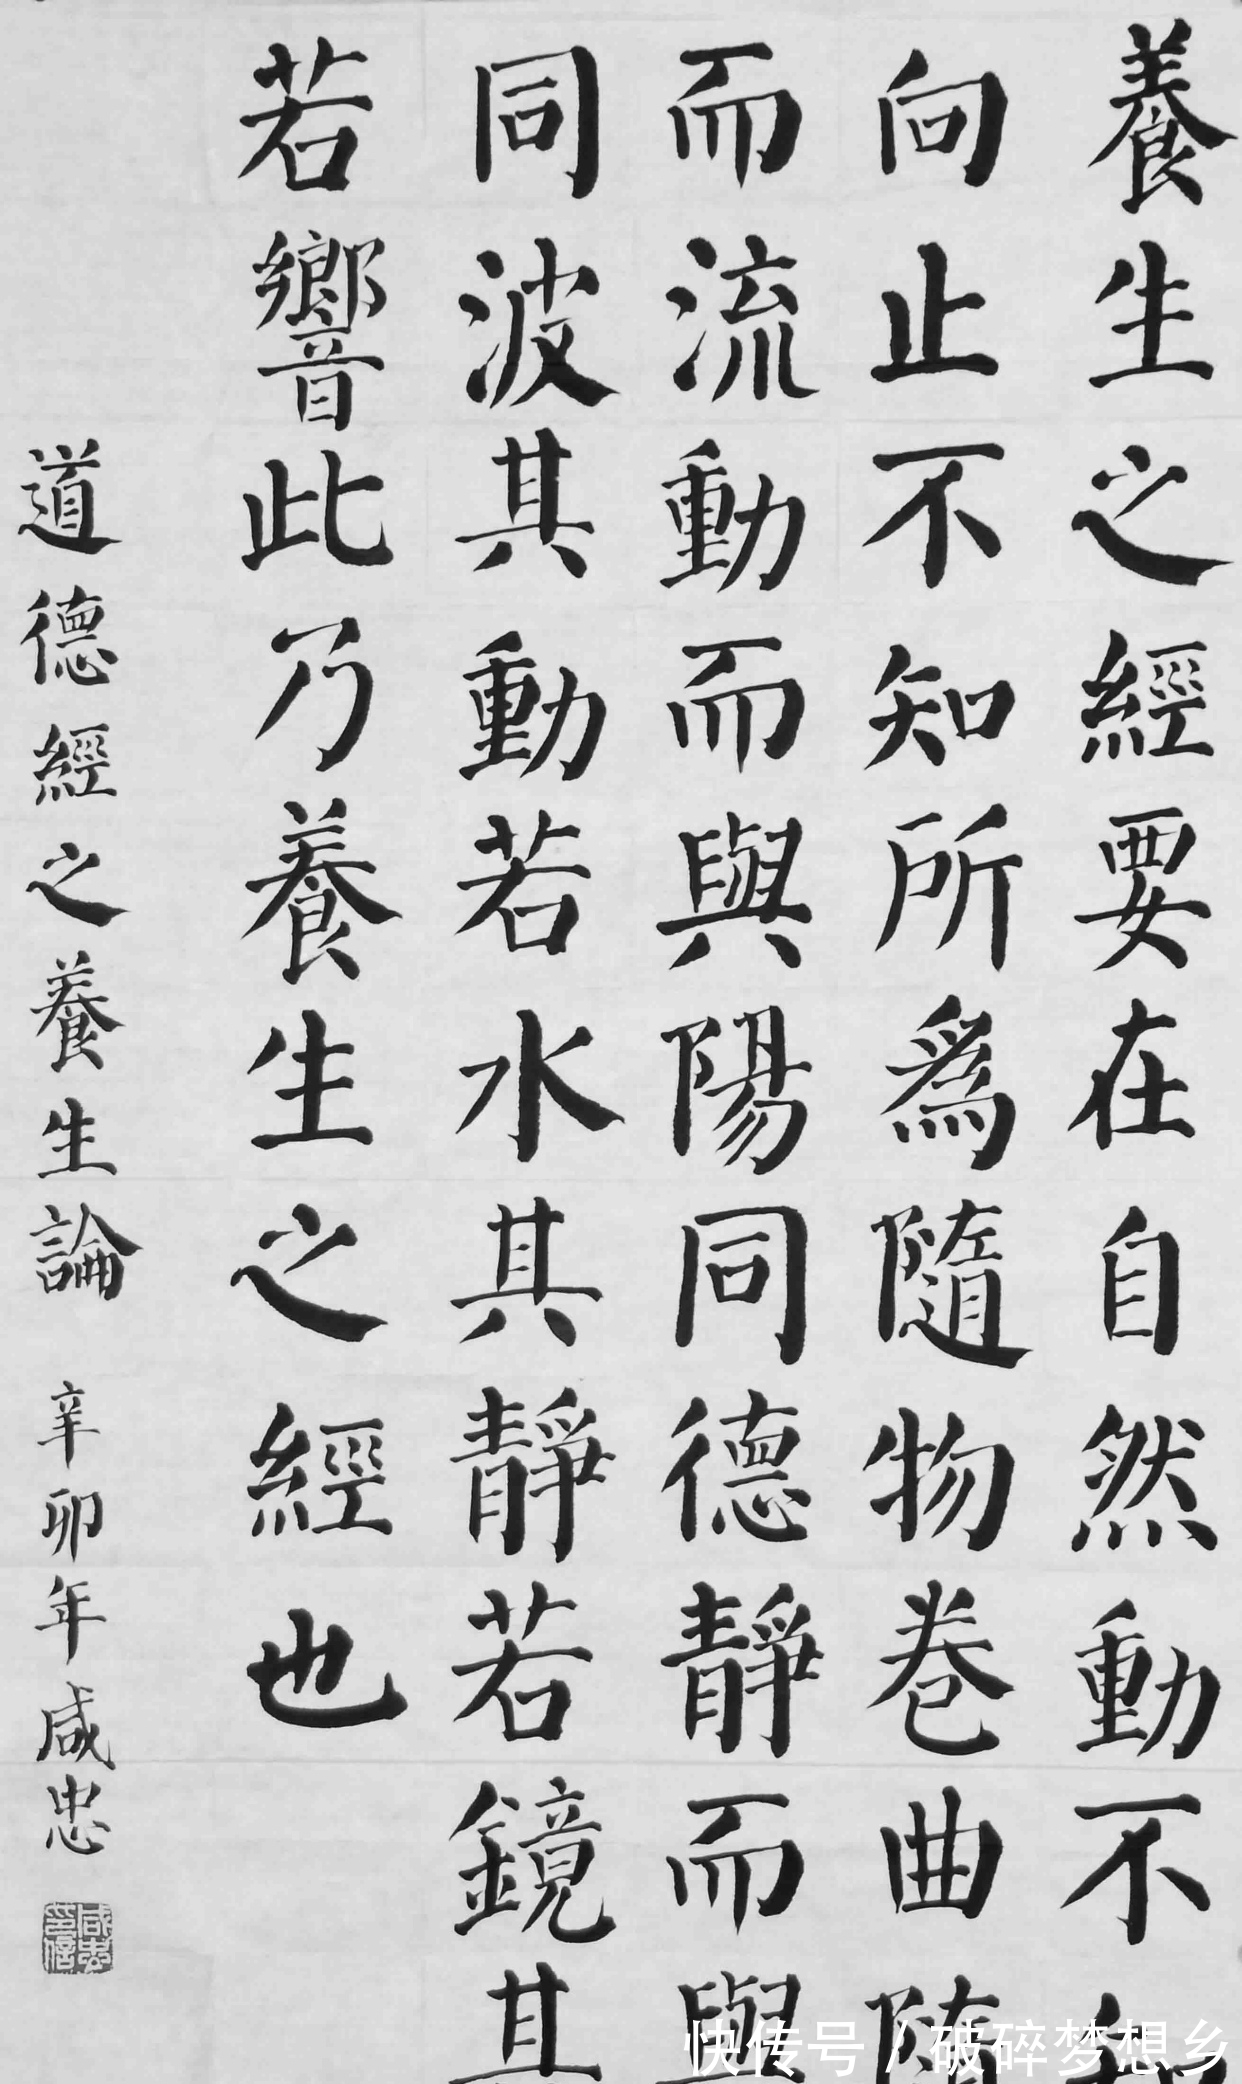 養生之經要在自然動不知
向止不知所爲隨物卷曲隨
而流動而與陽同德靜而與
同波其動若水其靜若鏡其
若響此乃養生之經也
道德經之養生論 辛卯年咸忠
咸忠印信
快传号/破碎梦想乡